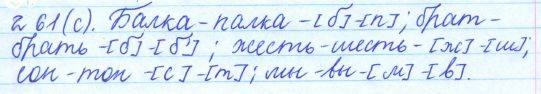 № 61(с). Балка - палка - [б] - [п]; брат -
брать - [б] - [б']; жесть - шесть - [ж] - [ш];
сон - тон - [с] - [т]; мы - вы - [м] - [в].